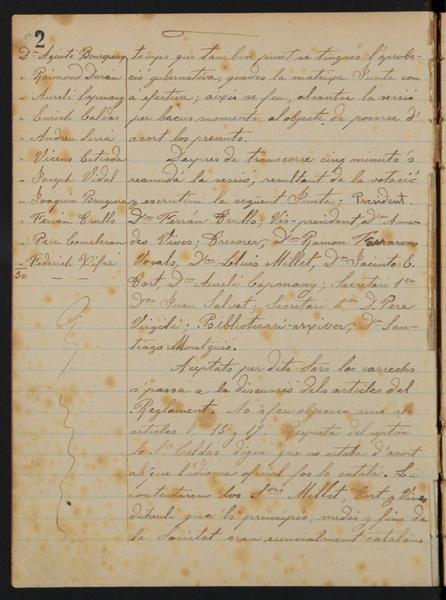 2
Dn. Agustí
" Raimond Duran
" Aureli Capmany
" Enrich Caldas
" Andreu Serra
" Vicens Estrada
" Joseph Vidal
" Joaquim Bruguera
" Ferrán Trullo
" Pere Comeleran
" Federich Pifré
30
temps que tan bon punt se tingués l'aprobació
gubernativa, quedés la mateixa Junta com
á efectiva; aixís se feu, alsantse la sessió
per breus moments al objecte de posarse d'
acort los presents.
Després de transcorre cinq minuts
reanudá la sessió, resultant de la votació
y escrutini la següent Junta; President
Dn. Ferrán Trullo; Vis-president, Dn. Amadeo
Vives; Tresorer, Dn. Ramon Farraron
Vocals, Dn. Lluis Millet, Dn. Jacinto E.
Tort, Dn. Aureli Capmany; Secretari 1er
Dn. Juan Salvat, Secretari 2on D. Pere
Virgili; Bibliotecari-arxiver, Dn. Santiago
Montguió.
Aceptats per dits Sors. los carrechs
s passá a la discussió dels articles del
Reglament. No s feu objeccio sino als
articles 15 y 17. Respecte del septim
lo Sr. Caldas digue que no estaba d'acort
ab que l'idioma oficial fos lo catalá. Li
contestaren los Srs. Millet, Tort y Vives
dihentli que 'ls principis, medis y fins de
la Societat eran esencialment catalans